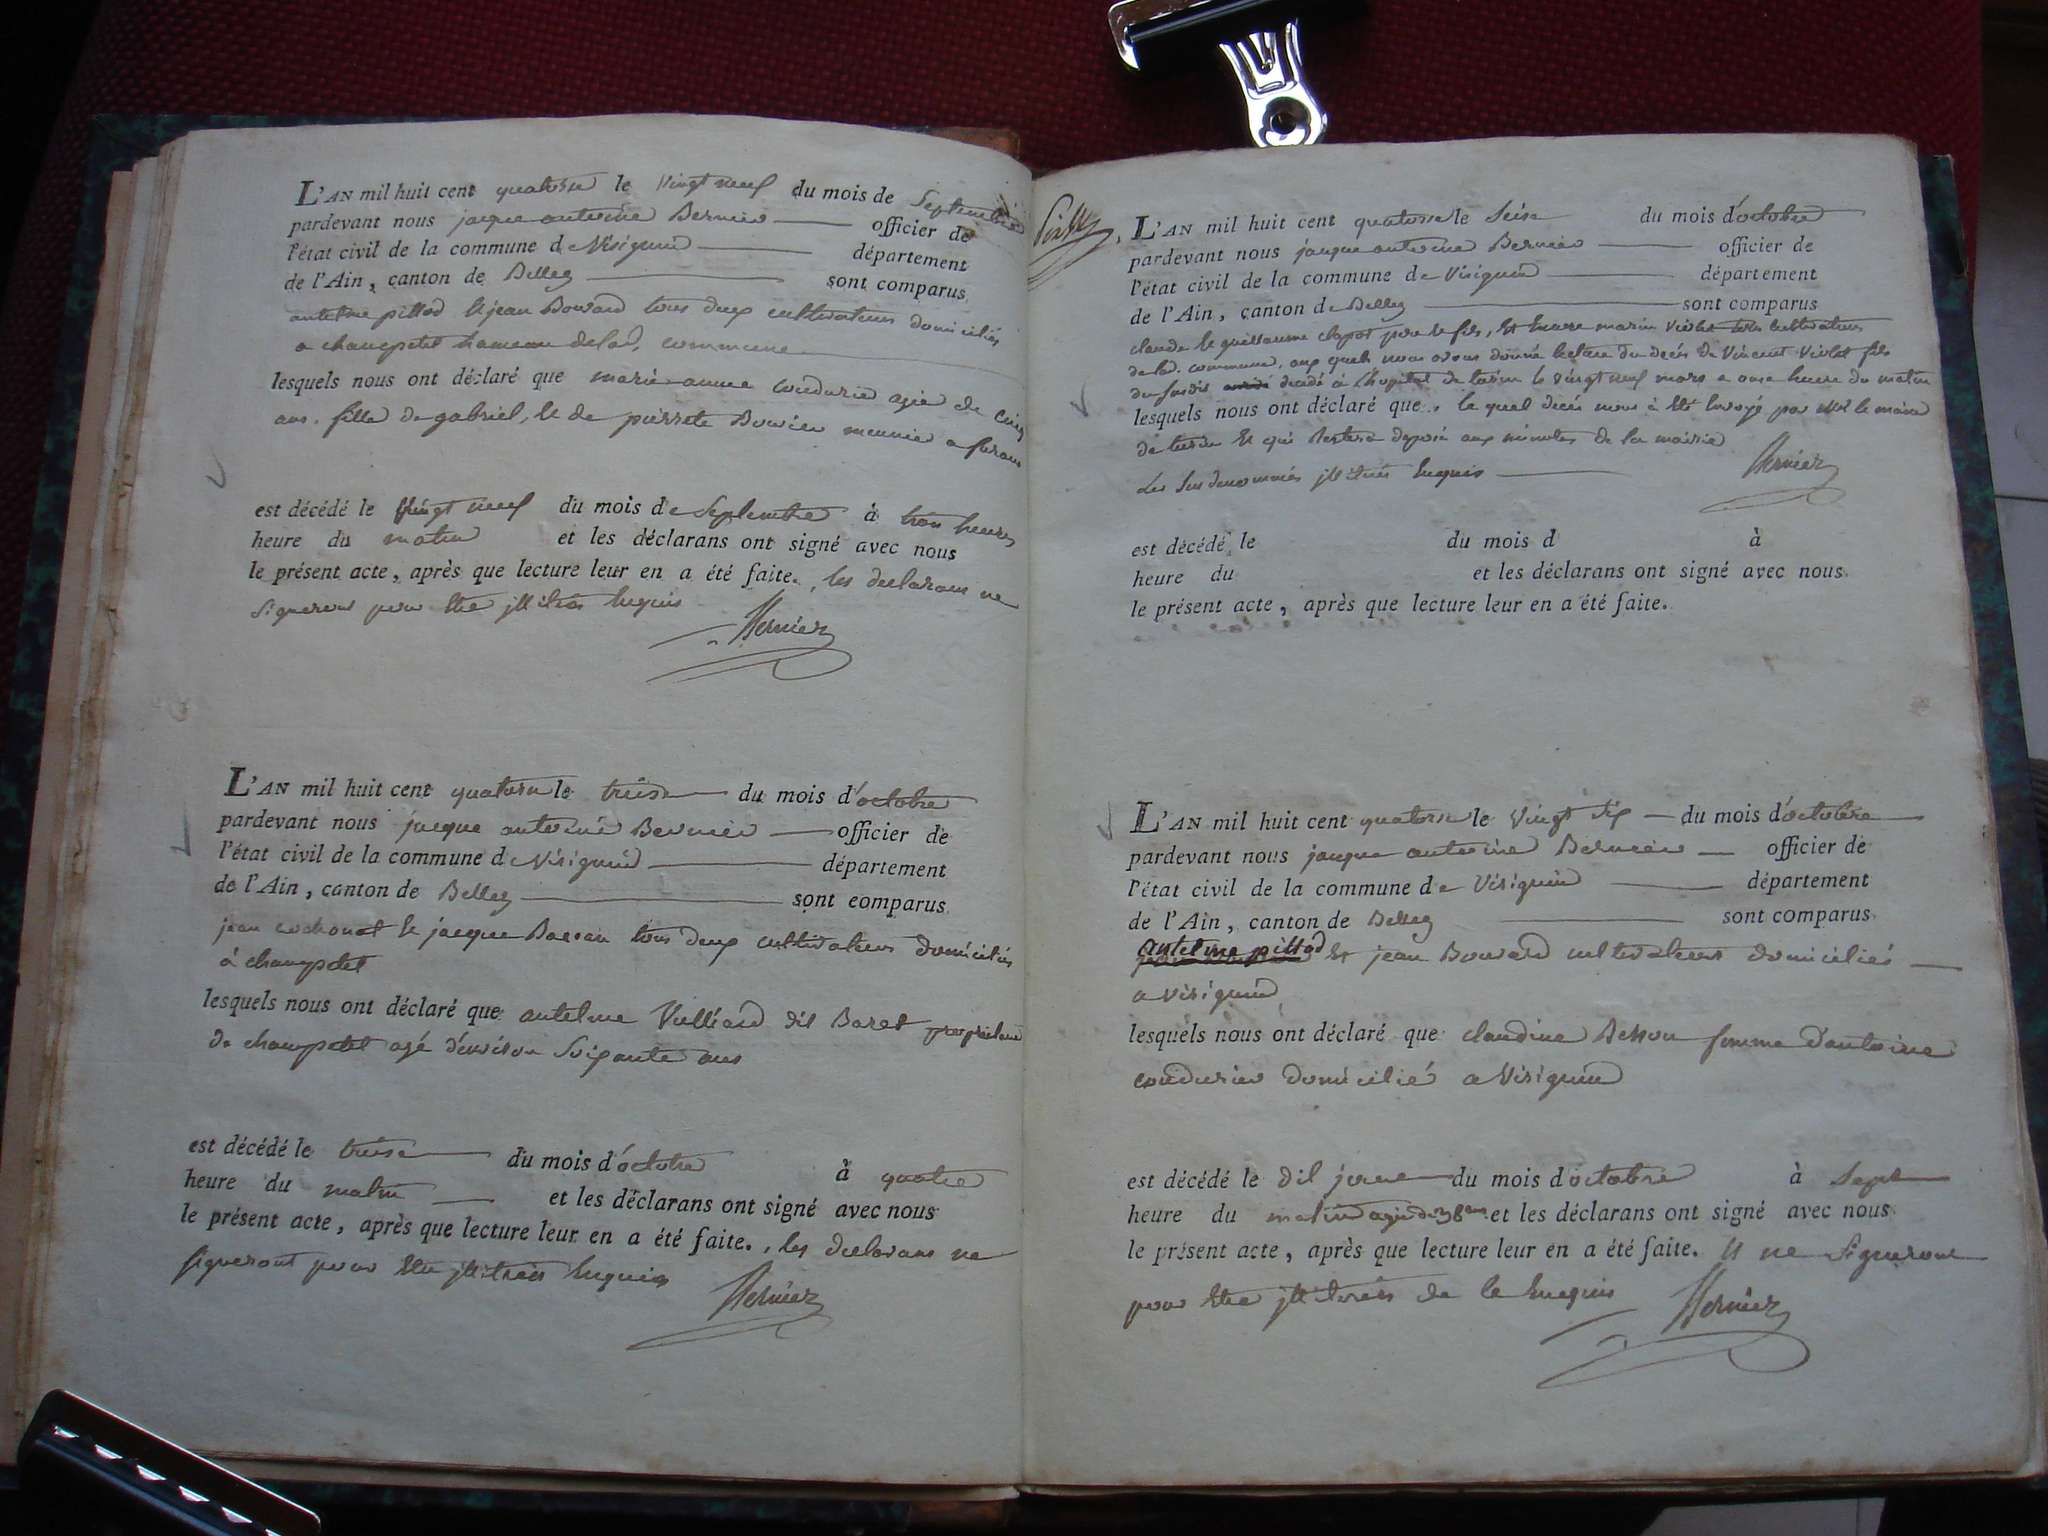 L'AN mil huit cent quatorse le vingt neuf du mois de Septembre
pardevant nous jacque antoine Bernier officier de
l'état civil de la commune de Virignin département
de l'Ain, canton de Belley sont comparus
antelme pittod et jean Bovard tous deux cultivateurs domiciliés
a champtel hameau de lad. commune
lesquels nous ont déclaré que marie anne coudurier agée de cinq
ans. fille de gabriel, et de pierrete meunier a
est décédé le vingt neuf du mois de Septembre à trois heures
heure du matin et les déclarans ont signé avec nous
le présent acte, après que lecture leur en a été faite., les declarans ne
signeront pour etre illitrés Enquis
Bernier
L'AN mil huit cent quatorse le treise du mois d'octobre
pardevant nous jacque antoine Bernier officier de
l'état civil de la commune de Virignin département
de l'Ain, canton de Belley sont comparus
jean et jacque tous deux cultivateurs domiciliés
à champtel
lesquels nous ont déclaré que antelme Vulliard dit Baret propriétaire
de champtel agé d'environ Soixante ans
est décédé le treise du mois d'octobre à quatre
heure du matin et les déclarans ont signé avec nous
le présent acte, après que lecture leur en a été faite., les declarans ne
signeront pour etre illitrés Enquis
Bernier
Violet
L'AN mil huit cent quatorse le Seise du mois d'octobre
pardevant nous jacque antoine Bernier officier de
l'état civil de la commune de Virignin département
de l'Ain, canton de Belley sont comparus
claude et guillaume clapot pere et fils, et marin Violet cultivateurs
de lad. commune, aux quels nous avons donné lecture du decés de Vincent Violet fils
du susdit decedé à l'hopital de turin le vingt neuf mars a onse heure du matin
lesquels nous ont déclaré que. le quel decés nous à été Envoyé par Mr le maire
de turin et qui restera deposé aux minutes de la mairie
Les Sus denommés illitrés Enquis Bernier
est décédé le du mois d à
heure du et les déclarans ont signé avec nous
le présent acte, après que lecture leur en a été faite.
L'AN mil huit cent quatorse le vingt six du mois d'octobre
pardevant nous jacque antoine Bernier officier de
l'état civil de la commune de Virignin département
de l'Ain, canton de Belley sont comparus
antelme pittod et jean Bovard cultivateurs domiciliés
a Virignin
lesquels nous ont déclaré que claudine Besson femme d'antoine
coudurier domicilié a Virignin
est décédé le dit jour du mois d'octobre à Sept
heure du matin agée de 38 ans et les déclarans ont signé avec nous
le présent acte, après que lecture leur en a été faite. et ne Signeront
pour etre illitrés de le Enquis Bernier